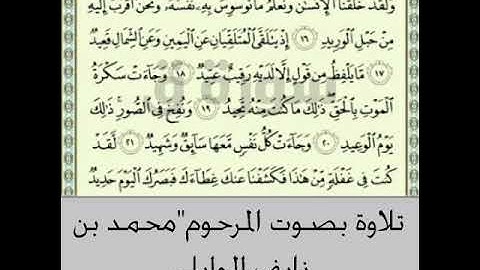 وَلَقَدْ خَلَقْنَا ٱلْإِنسَٰنَ وَنَعْلَمُ مَا تُوَسْوِسُ بِهِۦ نَفْسُهُۥ وَنَحْنُ أَقْرَبُ إِلَيْهِ
مِنْ حَبْلِ ٱلْوَرِيدِ ١٦ إِذْ يَتَلَقَّى ٱلْمُتَلَقِّيَانِ عَنِ ٱلْيَمِينِ وَعَنِ ٱلشِّمَالِ قَعِيدٌ
١٧ مَّا يَلْفِظُ مِن قَوْلٍ إِلَّا لَدَيْهِ رَقِيبٌ عَتِيدٌ ١٨ وَجَآءَتْ سَكْرَةُ
ٱلْمَوْتِ بِٱلْحَقِّ ذَٰلِكَ مَا كُنتَ مِنْهُ تَحِيدُ ١٩ وَنُفِخَ فِى ٱلصُّورِ ذَٰلِكَ
يَوْمُ ٱلْوَعِيدِ ٢٠ وَجَآءَتْ كُلُّ نَفْسٍ مَّعَهَا سَآئِقٌ وَشَهِيدٌ ٢١ لَّقَدْ
كُنتَ فِى غَفْلَةٍ مِّنْ هَٰذَا فَكَشَفْنَا عَنكَ غِطَآءَكَ فَبَصَرُكَ ٱلْيَوْمَ حَدِيدٌ
سورة ق
تلاوة بصوت المرحوم"محمد بن